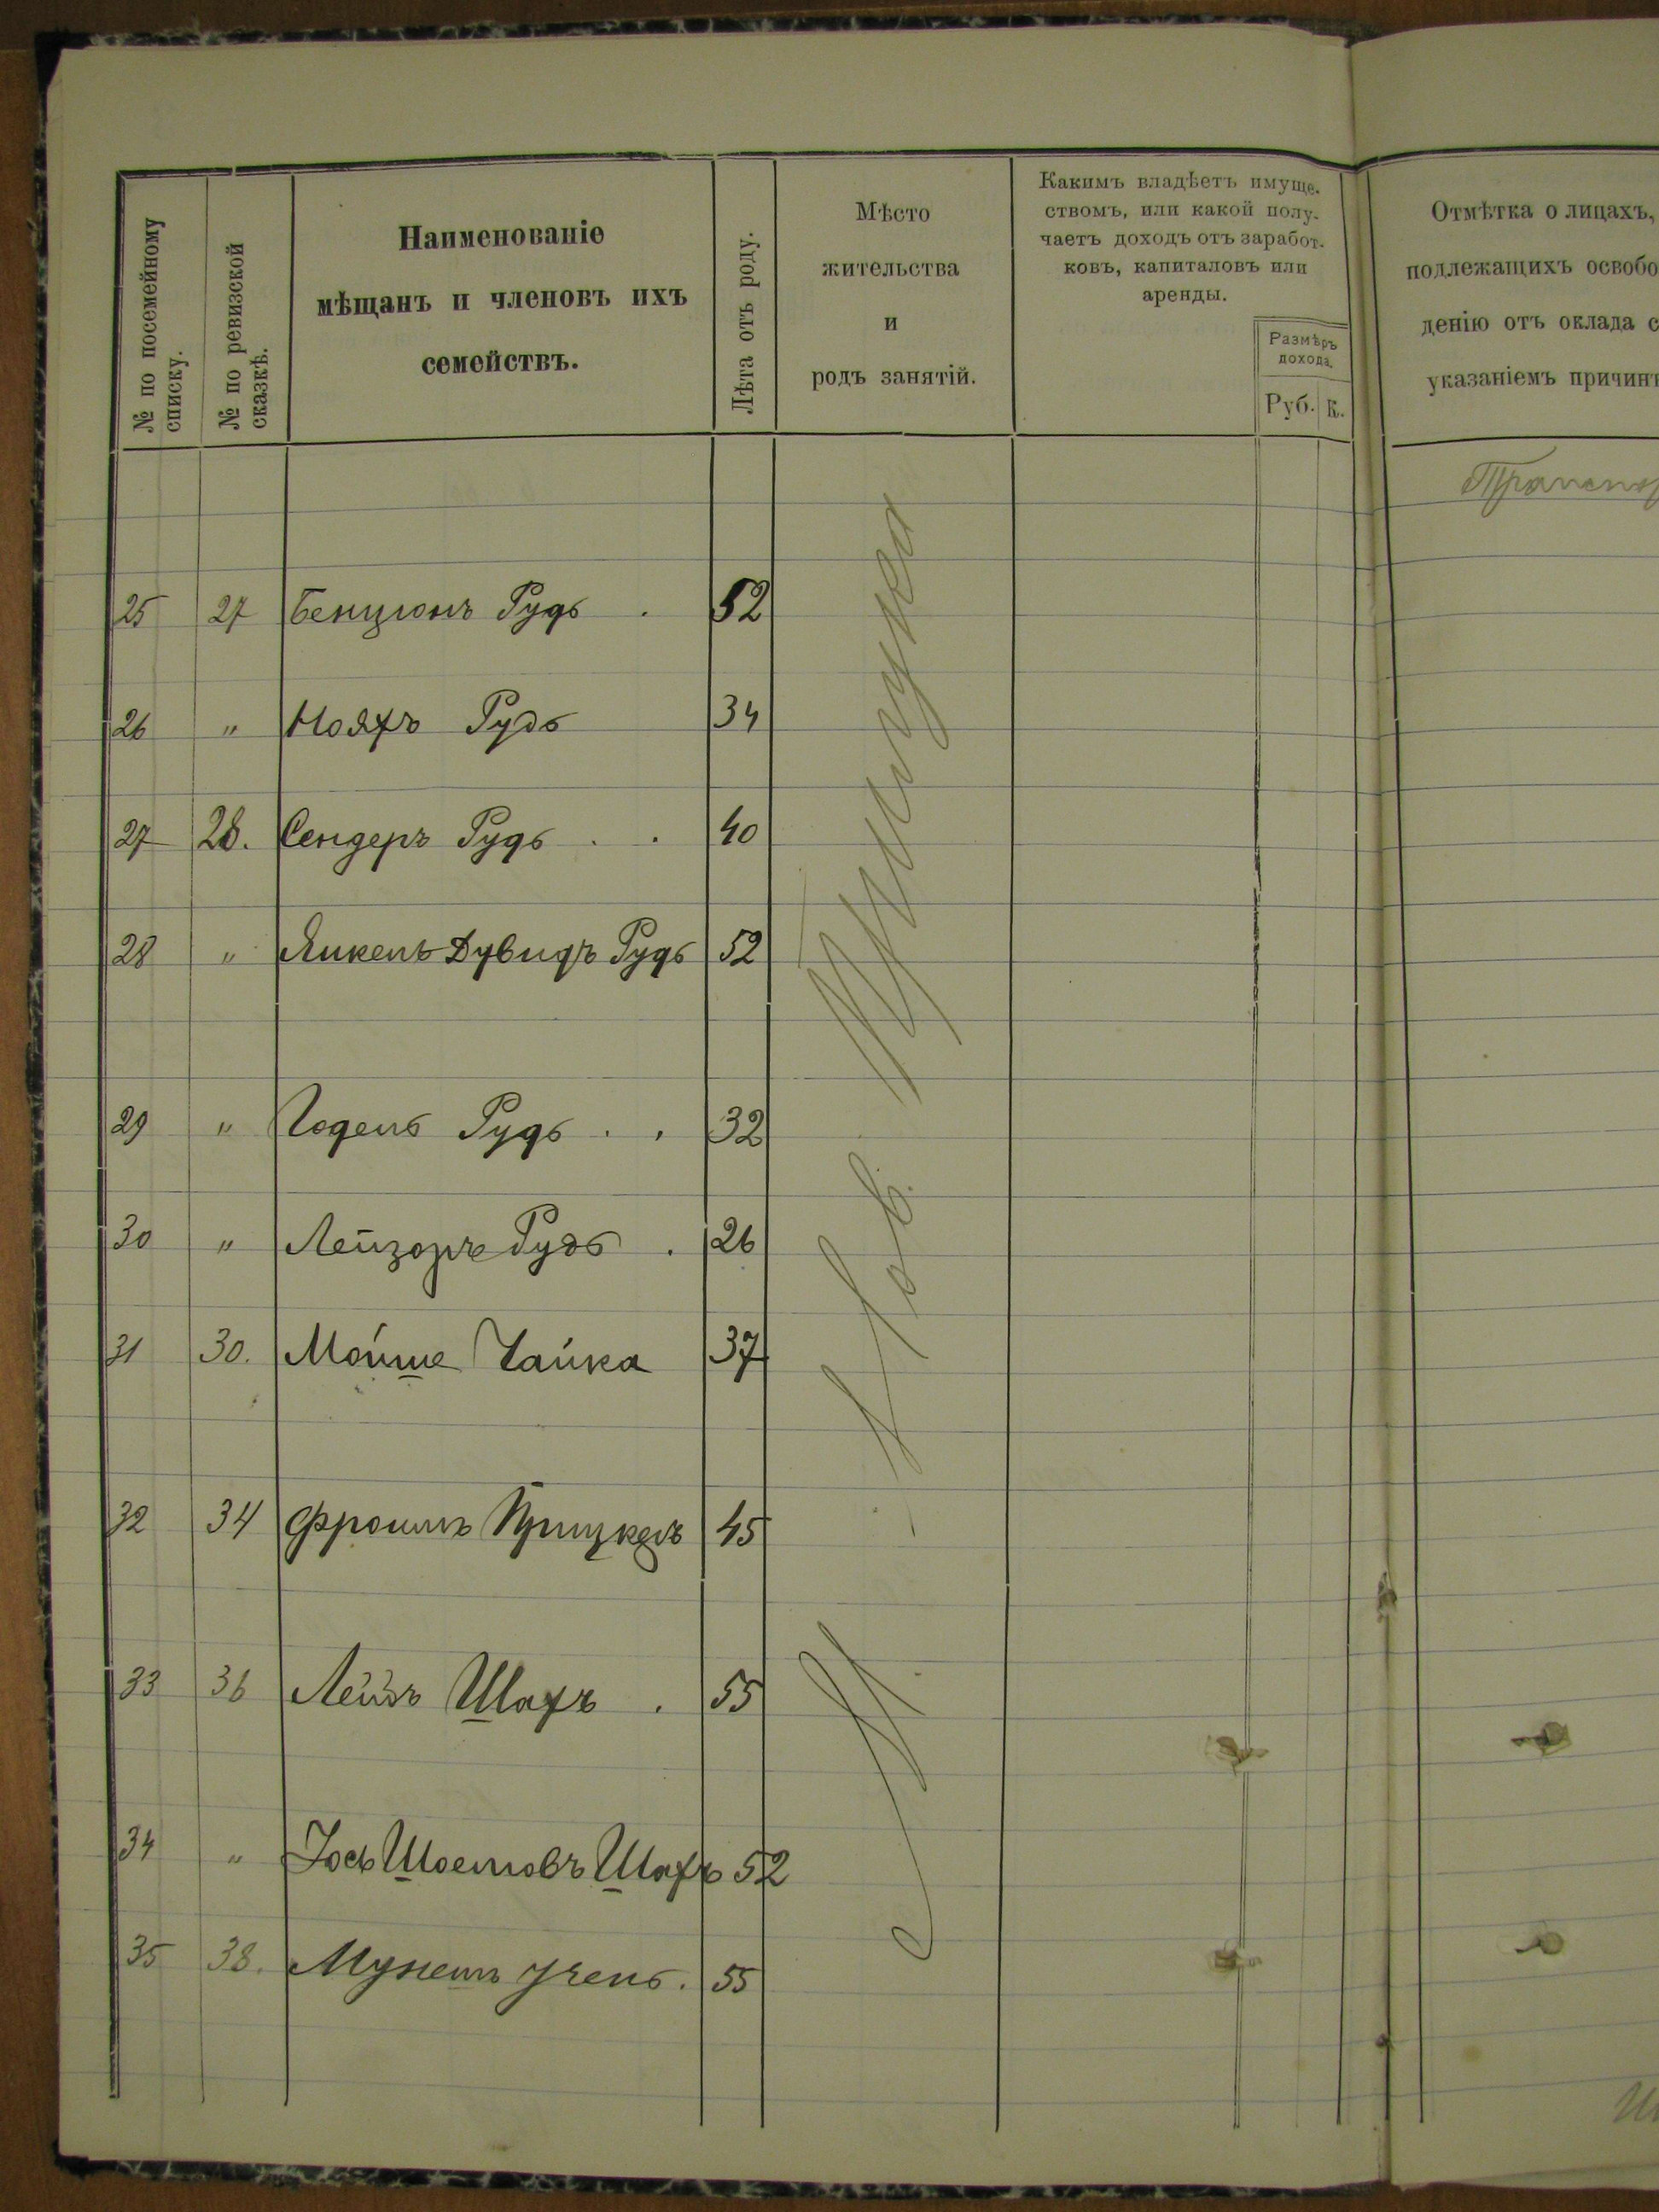 № по посемейному
списку.
№ по ревизской
сказкѣ.
Наименованіе
мѣщанъ и членовъ ихъ
семействъ.
Лѣта отъ роду.
Мѣсто
жительства
и
родъ занятій.
Какимъ владѣетъ имуще-
ствомъ, или какой полу-
чаетъ доходъ отъ заработ-
ковъ, капиталовъ или
аренды.
Размѣръ
дохода.
Руб. К.
Отмѣтка о лицахъ,
подлежащихъ освобо
денію отъ оклада с
указаніемъ причинъ
25 27 Бенціонъ Рудь . 52
26 " Нояхъ Рудь 34
27 28. Сендеръ Рудь . . 40
28 " Янкель Дувидъ Рудь 52
29 " Годель Рудь . . 32
30 " Лейзоръ Рудь . 26
31 30. Мойше Чайка 37
32 34 Фроимъ Прицкеръ 45
33 36 Лейзъ Шахъ . 55
34 " Іось Шоемовъ Шахъ 52
35 38. 55